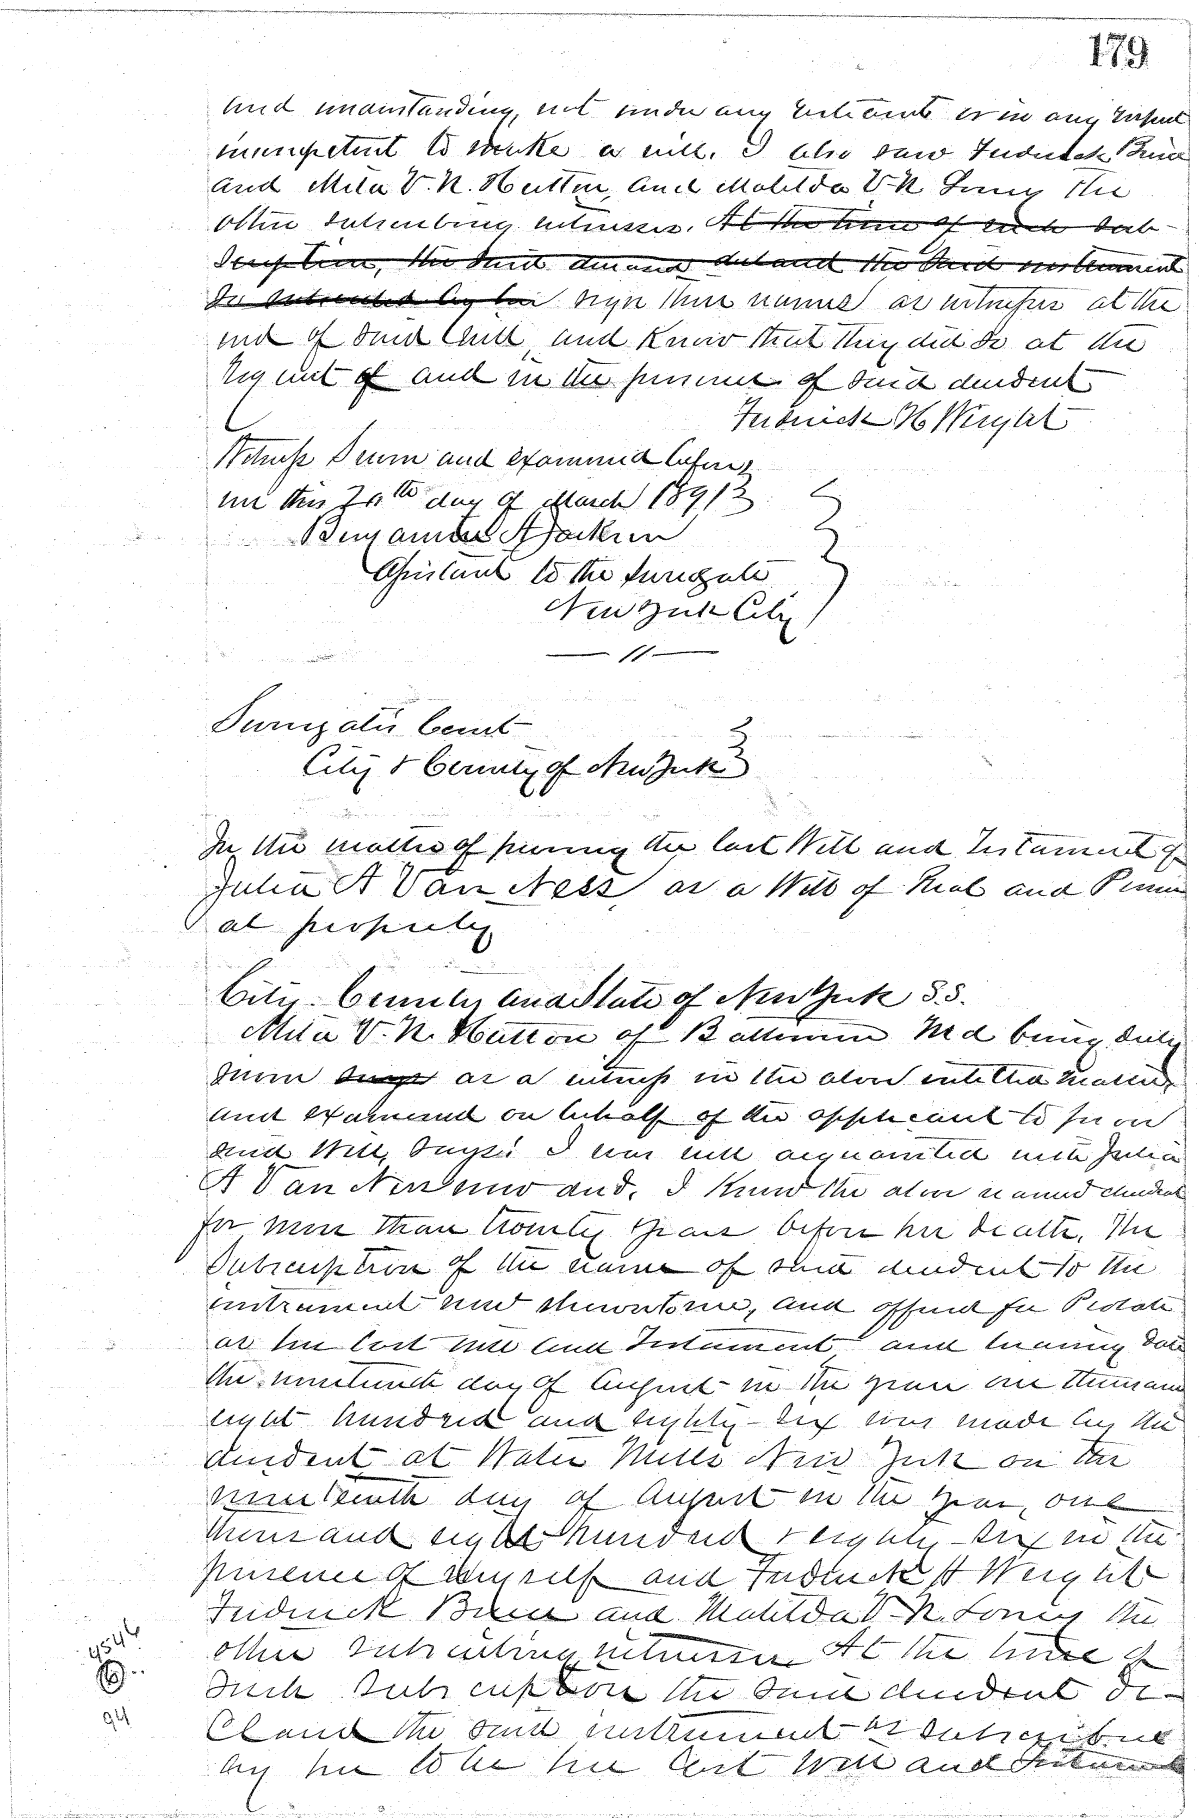 179
and understanding, not under any restraint or in any respect
incompetent to make a will. I also saw Frederick
and Mila V. N. Hutton, and Matilda V. N. Loney the
other subscribing witnesses. At the time of such sub-
scription, the said decedent declared the said instrument
so subscribed by her sign their names as witnesses at the
end of said Will, and know that they did so at the
request of and in the presence of said decedent
Frederick H Wright
Witness Sworn and examined before
me this day of March 1891
Benjamin A Jackson
Assistant to the Surrogate
New York City
— " —
Surrogates Court
City & County of New York
In the matter of proving the last Will and Testament of
Julia A Van Ness as a Will of Real and Person
al property
City. County and State of New York S.S.
Mila V. N. Hutton of Baltimore Md being duly
sworn says as a witness in the above entitled matter,
and examined on behalf of the applicant to prove
said Will, Says: I was well acquainted with Julia
A Van Ness now and. I knew the above named decedent
for more than twenty years before her death. The
Subscription of the name of said decedent to the
instrument now shown to me, and offered for Probate
as her last will and Testament and bearing date
the nineteenth day of August in the year one thousand
eight hundred and eighty-six was made by the
decedent at Water Mills New York on the
nineteenth day of August in the year, one
thousand eight hundred & eighty-six in the
presence of myself and Frederick H Wright
Frederick and Matilda V. N. Loney the
other subscribing witnesses At the time of
such subscription the said decedent de-
clared the said instrument so subscribed
by her to be her last will and Testament
4546
6
94